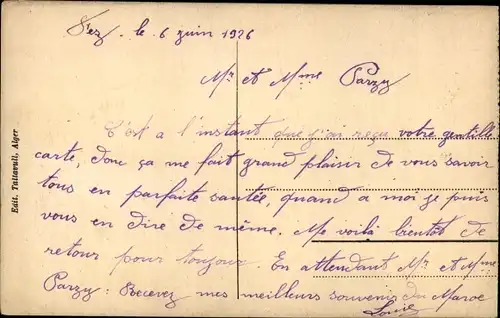 Fez. le 6 juin 1926
Mr et Mme Parzy
C'est a l'instant que j'ai reçu votre gentille
carte, donc ça me fait grand plaisir de vous savoir
tous en parfaite santée, quand a moi je puis
vous en dire de même. Me voilà bientot de
retour pour toujour. En attendant Mr et Mme
Parzy: Recevez mes meilleurs souvenirs du Maroc
Louis
Edit. Taitavull, Alger